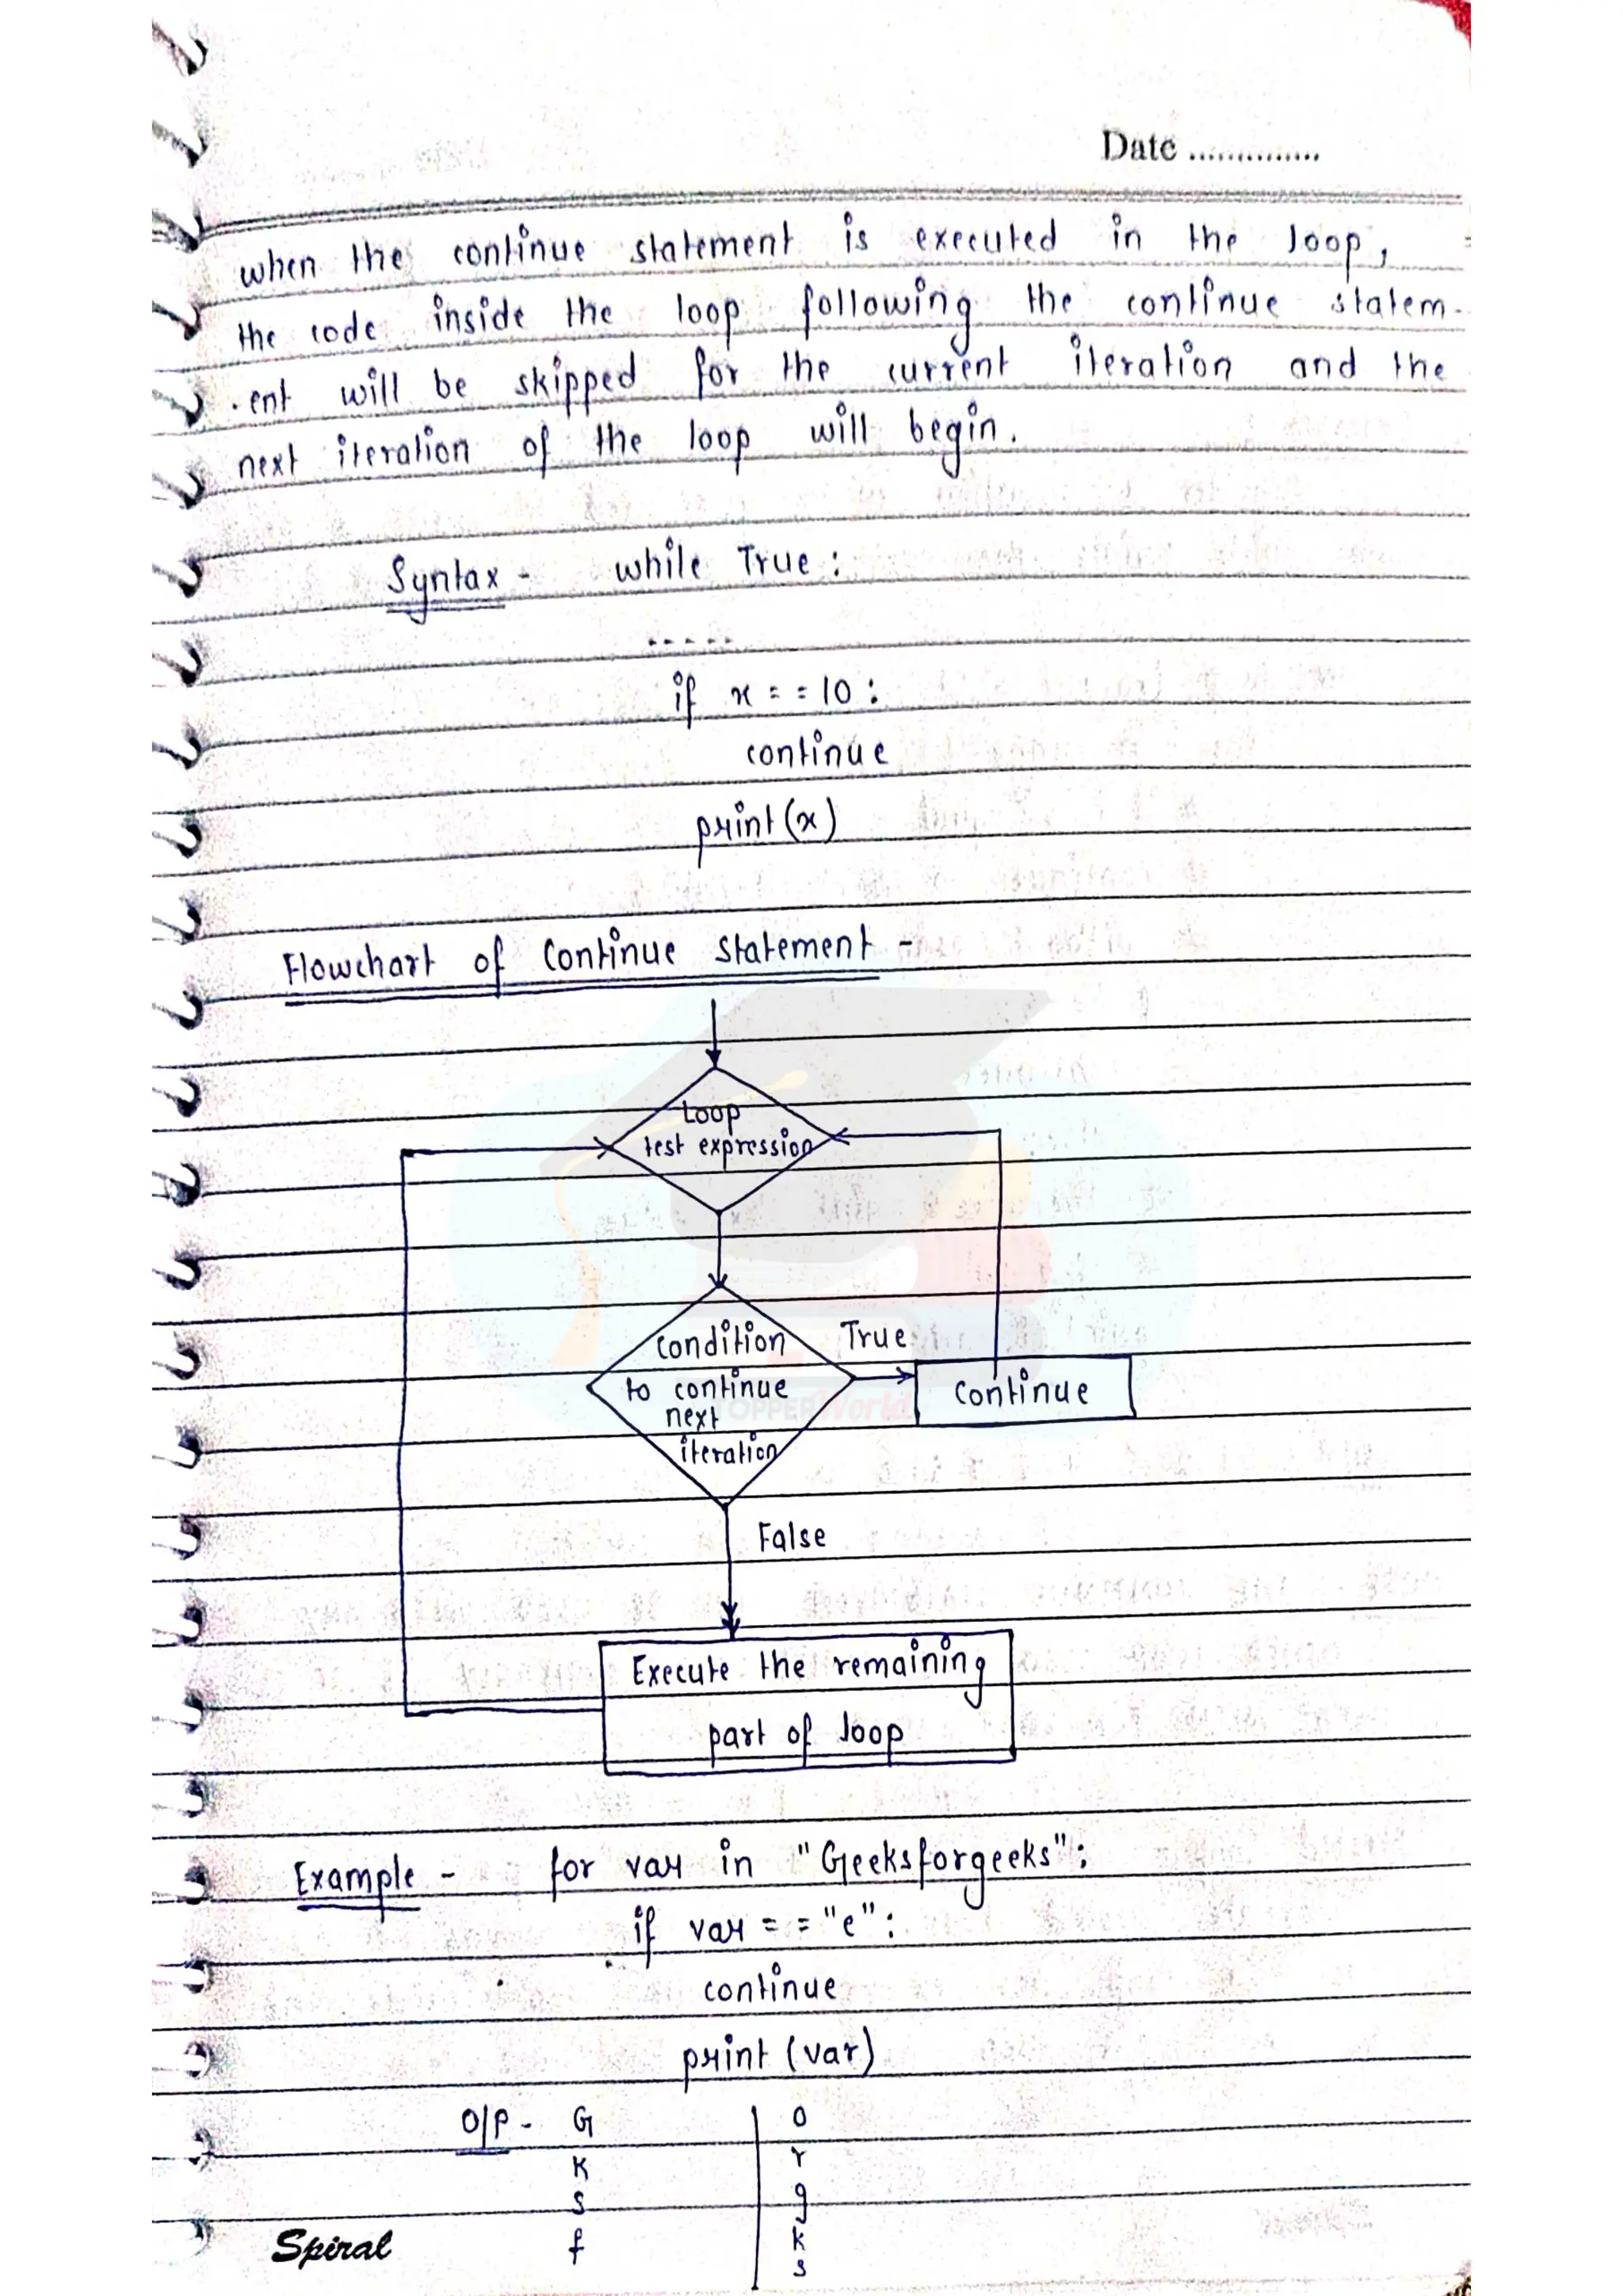 Date ..............
when the continue statement is executed in the loop,
the code inside the loop following the continue statem-
-ent will be skipped for the current iteration and the
next iteration of the loop will begin.
Syntax - while True :
.....
if x = = 10 :
continue
print (x)
Flowchart of Continue Statement -
Loop
test expression
condition
to continue
next
iteration
True
continue
False
Execute the remaining
part of loop
TOPPERWorld
Example - for var in "Geeksforgeeks":
if var = = "e" :
continue
print (var)
O/P - G
K
s
f
o
r
g
k
s
Spiral